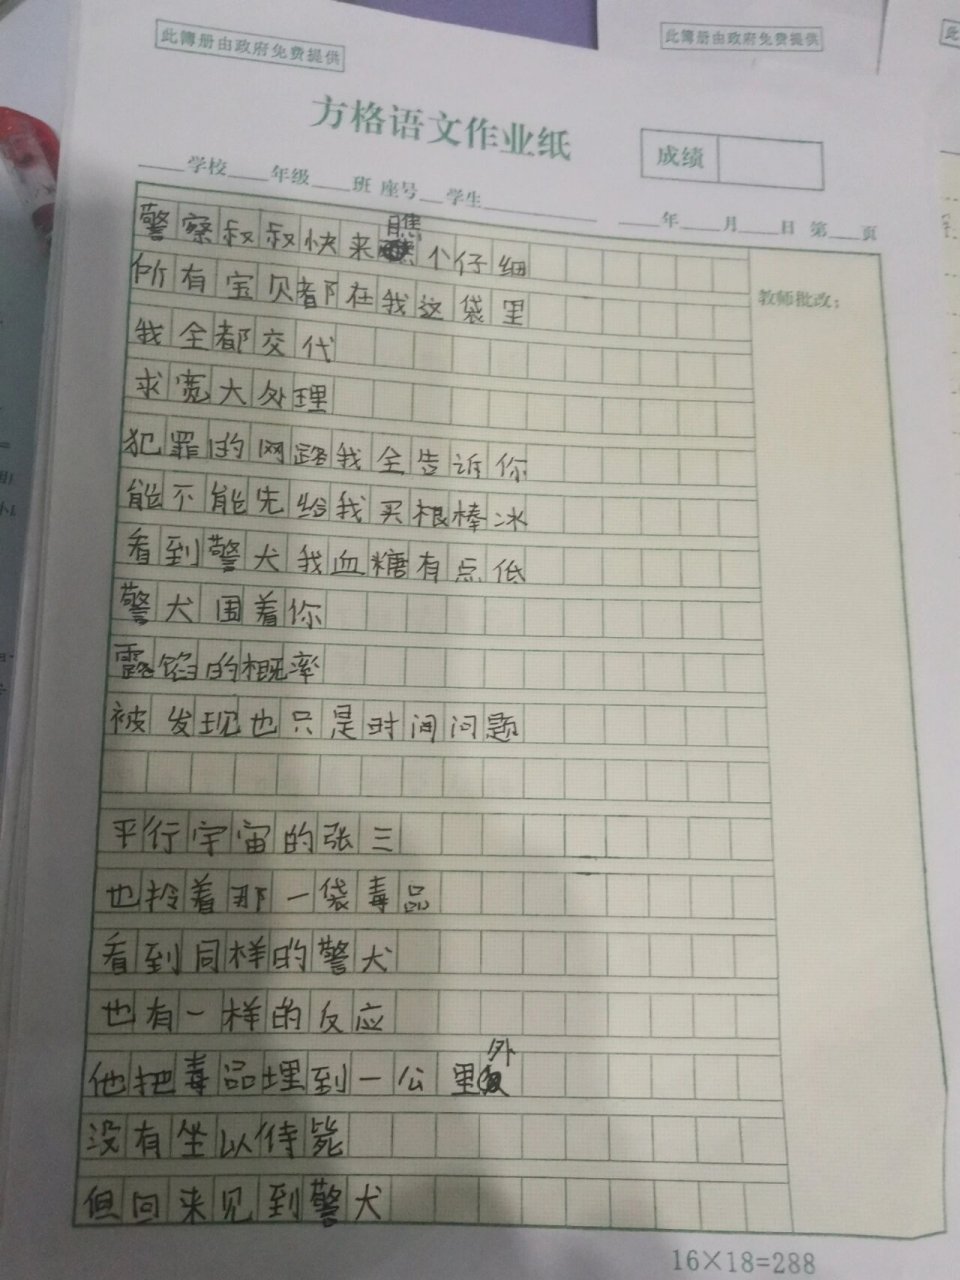 此簿册由政府免费提供
此簿册由政府免费提供
方格语文作业纸
成绩
学校 年级 班 座号 学生
年 月 日 第 页
教师批改：
警察叔叔快来瞧个仔细
所有宝贝都在我这袋里
我全都交代
求宽大处理
犯罪的网路我全告诉你
能不能先给我买根棒冰
看到警犬我血糖有点低
警犬围着你
露馅的概率
被发现也只是时间问题
平行宇宙的张三
也拎着那一袋毒品
看到同样的警犬
也有一样的反应
他把毒品埋到一公里外
没有坐以待毙
但回来见到警犬
16×18=288